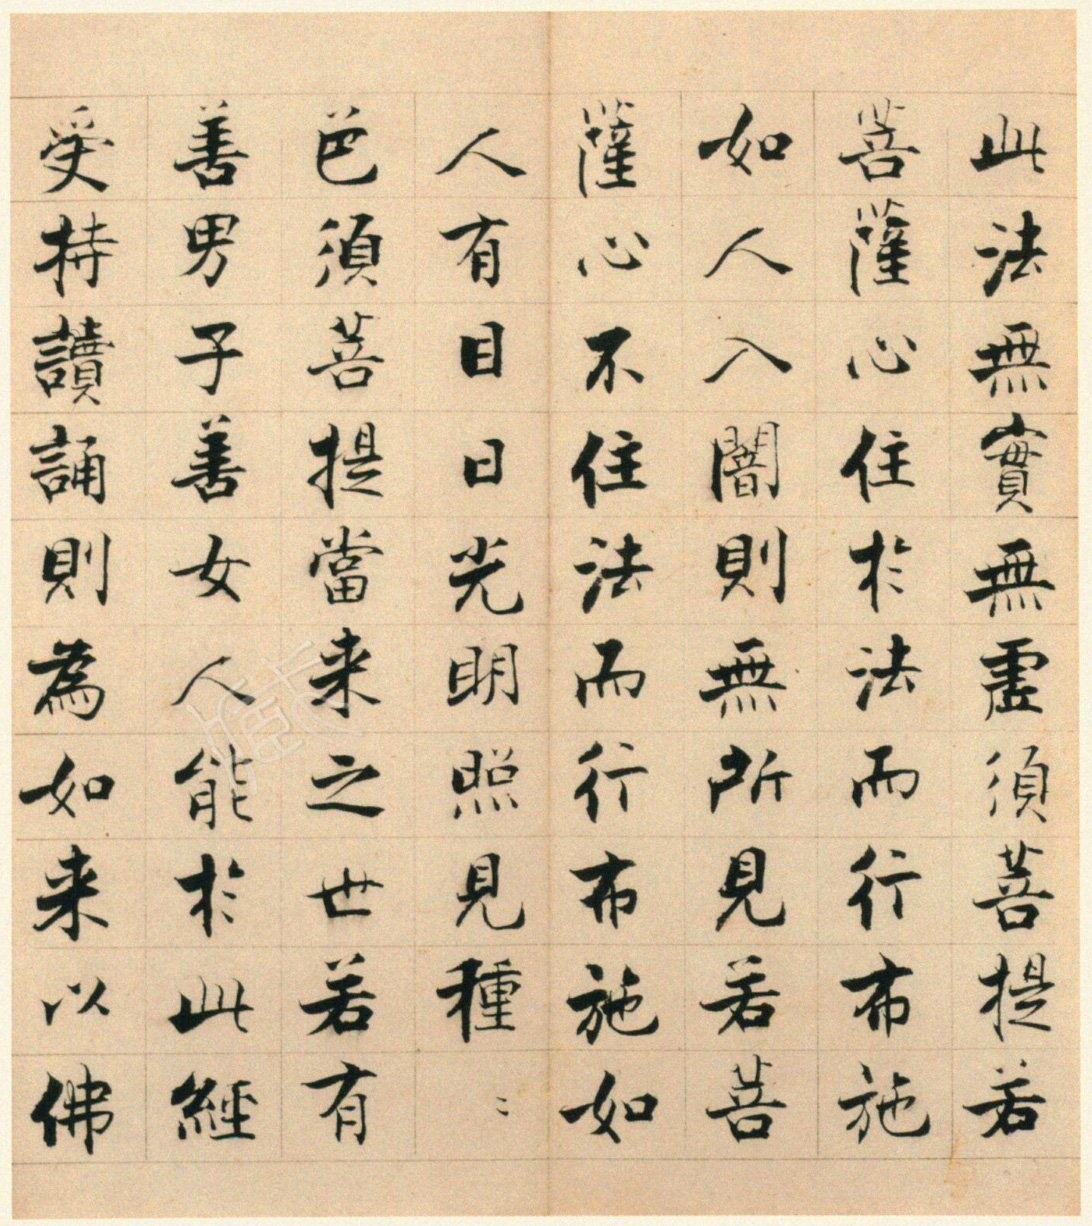 此法無實無虛須菩提若
菩薩心住於法而行布施
如人入闇則無所見若菩
薩心不住法而行布施如
人有目日光明照見種〻
色須菩提當来之世若有
善男子善女人能於此經
受持讀誦則為如来以佛